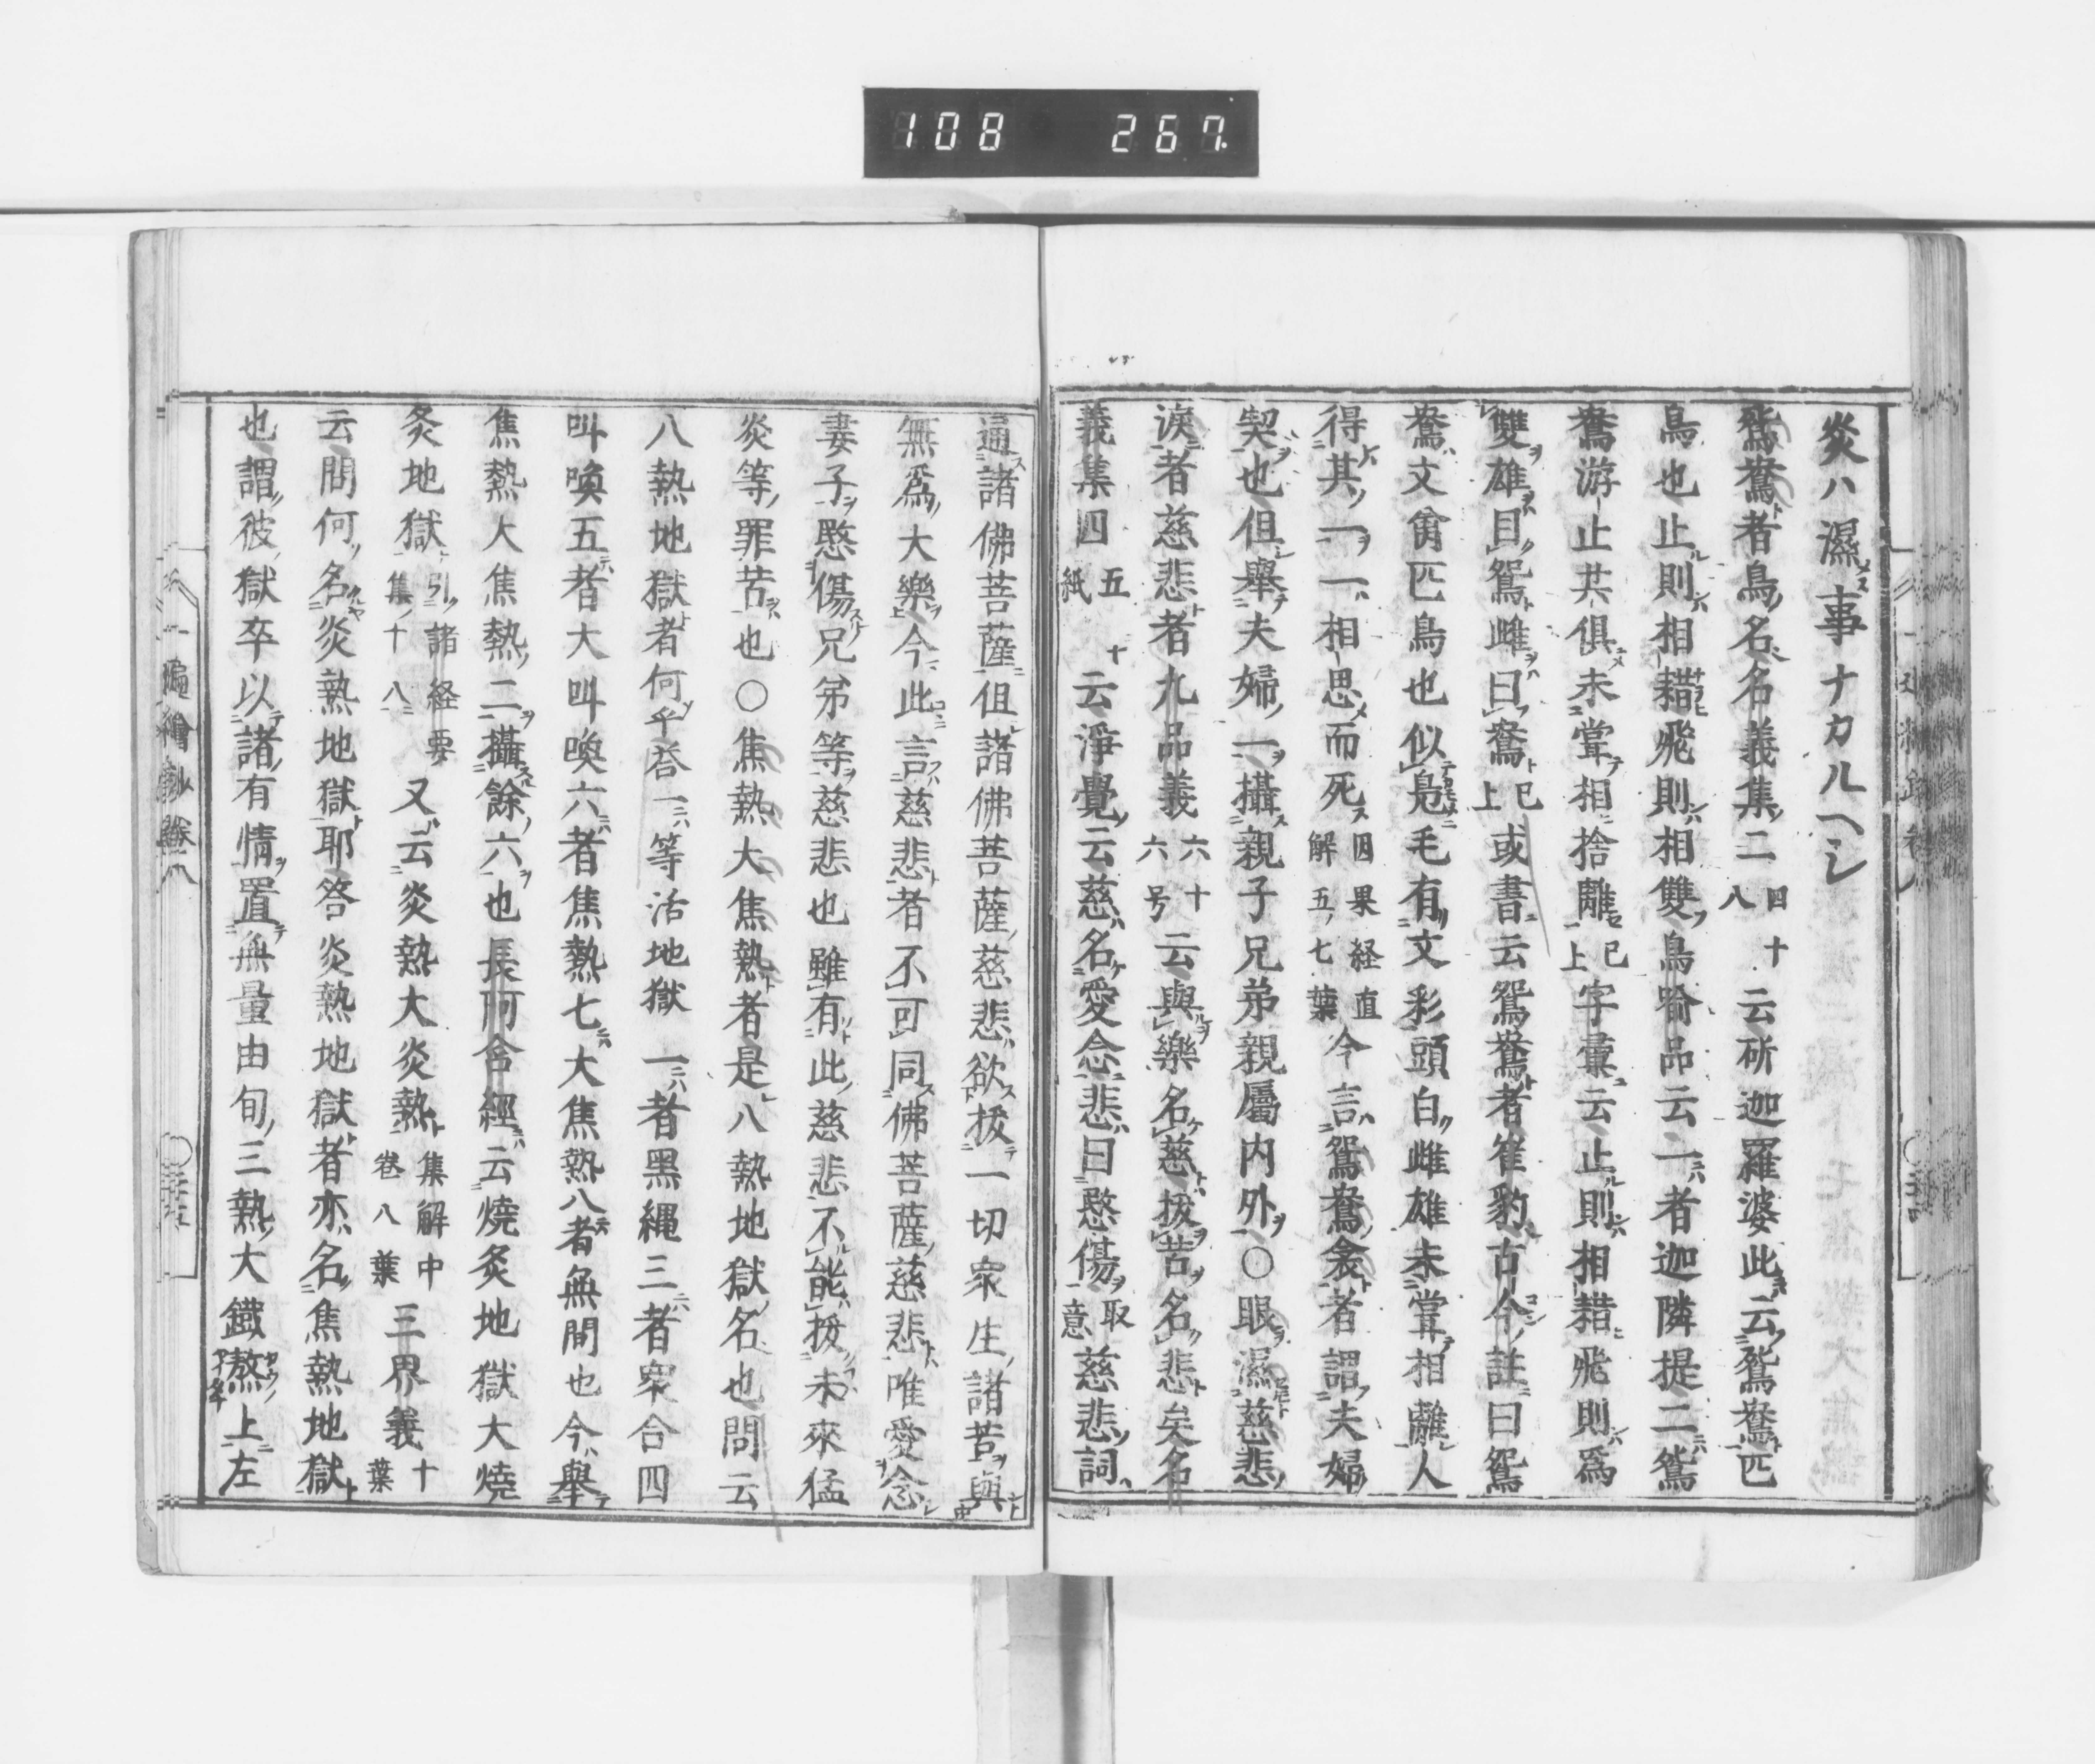 108 267
炎ハ濕事ナカルヘシ
鴛鴦者鳥名名義集二 四十八 云斫迦羅婆此云鴛鴦匹
鳥也止則相耤飛則相雙鳥喩品云一者迦隣提二鴛
鴦游止共俱未甞相捨離 已上 字彙云止則相耤飛則爲
雙雄曰鴛雌曰鴦 已上 或書云鴛鴦者崔豹古今註曰鴛
鴦文禽匹鳥也似鳬毛有文彩頭白雌雄未甞相離人
得其一一相思而死 因果経直解五七葉 今言鴛鴦衾者謂夫婦
契也但舉夫婦一攝親子兄弟親屬内外〇眼濕慈悲
淚者慈悲者九品義 六十六号 云與樂名慈拔苦名悲矣名
義集四 五十紙 云淨覺云慈名愛念悲曰愍傷 取意 慈悲詞
通諸佛菩薩但諸佛菩薩慈悲欲拔一切衆生諸苦與
無爲大樂今此言慈悲者不可同佛菩薩慈悲唯愛念
妻子愍傷兄弟等慈悲也雖有此慈悲不能拔未來猛
炎等罪苦也〇焦熱大焦熱者是八熱地獄名也問云
八熱地獄者何乎荅一等活地獄一者黑縄三者衆合四
叫喚五者大叫喚六者焦熱七大焦熱八者無間也今舉
焦熱大焦熱二攝餘六也長阿含經云燒炙地獄大燒
炙地獄 引諸経要集十八 又云炎熱大炎熱 集解中卷八葉 三界義 十葉
云問何名炎熱地獄耶答炎熱地獄者亦名焦熱地獄
也謂彼獄卒以諸有情置無量由旬三熱大鐵熬上左
一遍繪鈔卷八